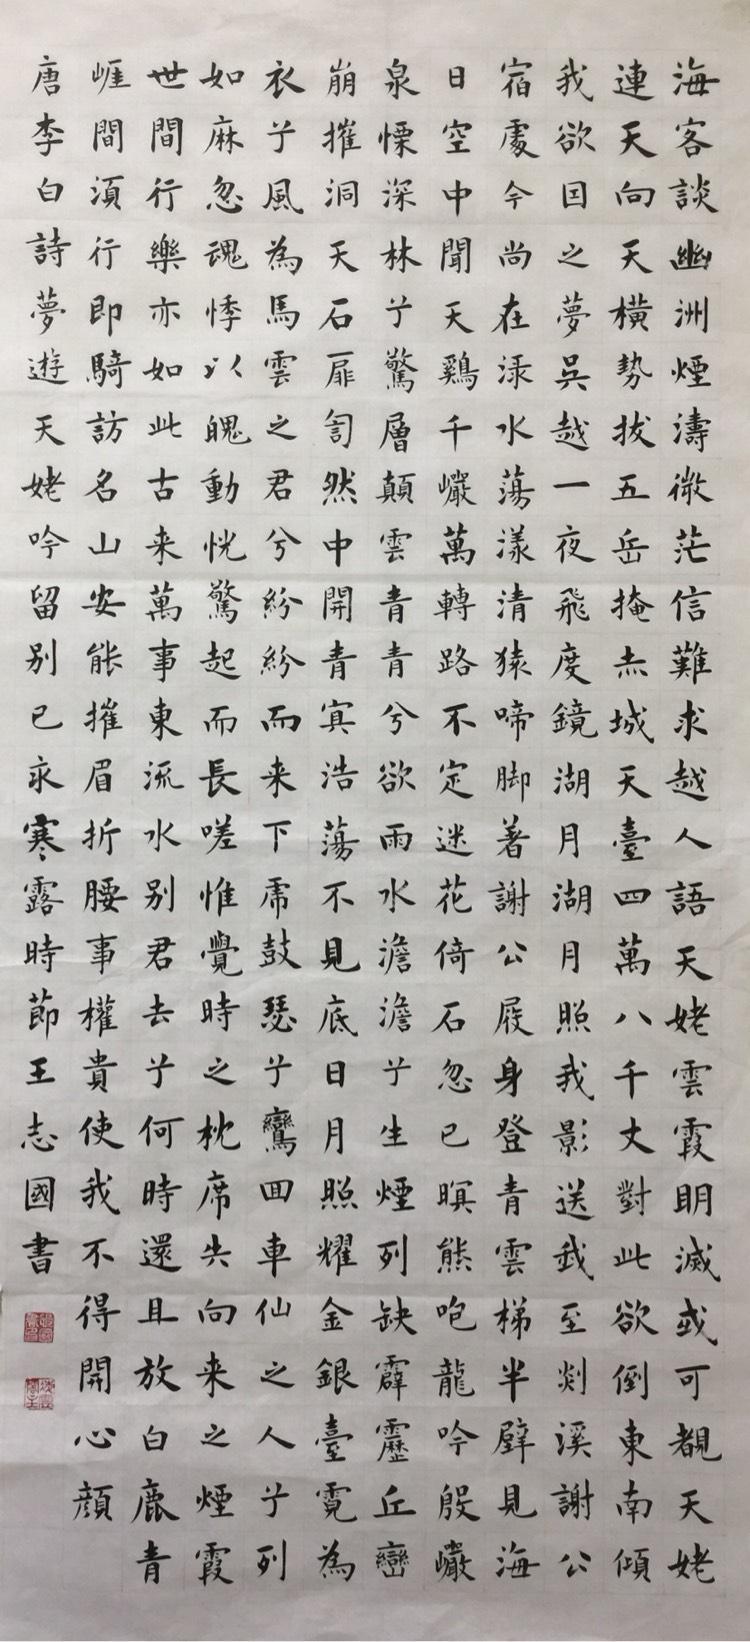 海客談幽洲煙濤微茫信難求越人語天姥雲霞明滅或可覩天姥
連天向天橫勢拔五岳掩赤城天臺四萬八千丈對此欲倒東南傾
我欲因之夢吳越一夜飛度鏡湖月湖月照我影送我至剡溪謝公
宿處今尚在渌水蕩漾清猿啼脚著謝公屐身登青雲梯半壁見海
日空中聞天鷄千巖萬轉路不定迷花倚石忽已暝熊咆龍吟殷巖
泉慄深林兮驚層顛雲青青兮欲雨水澹澹兮生煙列缺霹靂丘巒
崩摧洞天石扉訇然中開青冥浩蕩不見底日月照耀金銀臺霓為
衣兮風為馬雲之君兮紛紛而来下虎鼓瑟兮鸞回車仙之人兮列
如麻忽魂悸以魄動恍驚起而長嗟惟覺時之枕席失向来之煙霞
世間行樂亦如此古来萬事東流水別君去兮何時還且放白鹿青
崕間須行即騎訪名山安能摧眉折腰事權貴使我不得開心顔
唐李白詩夢遊天姥吟留別已亥寒露時節王志國書